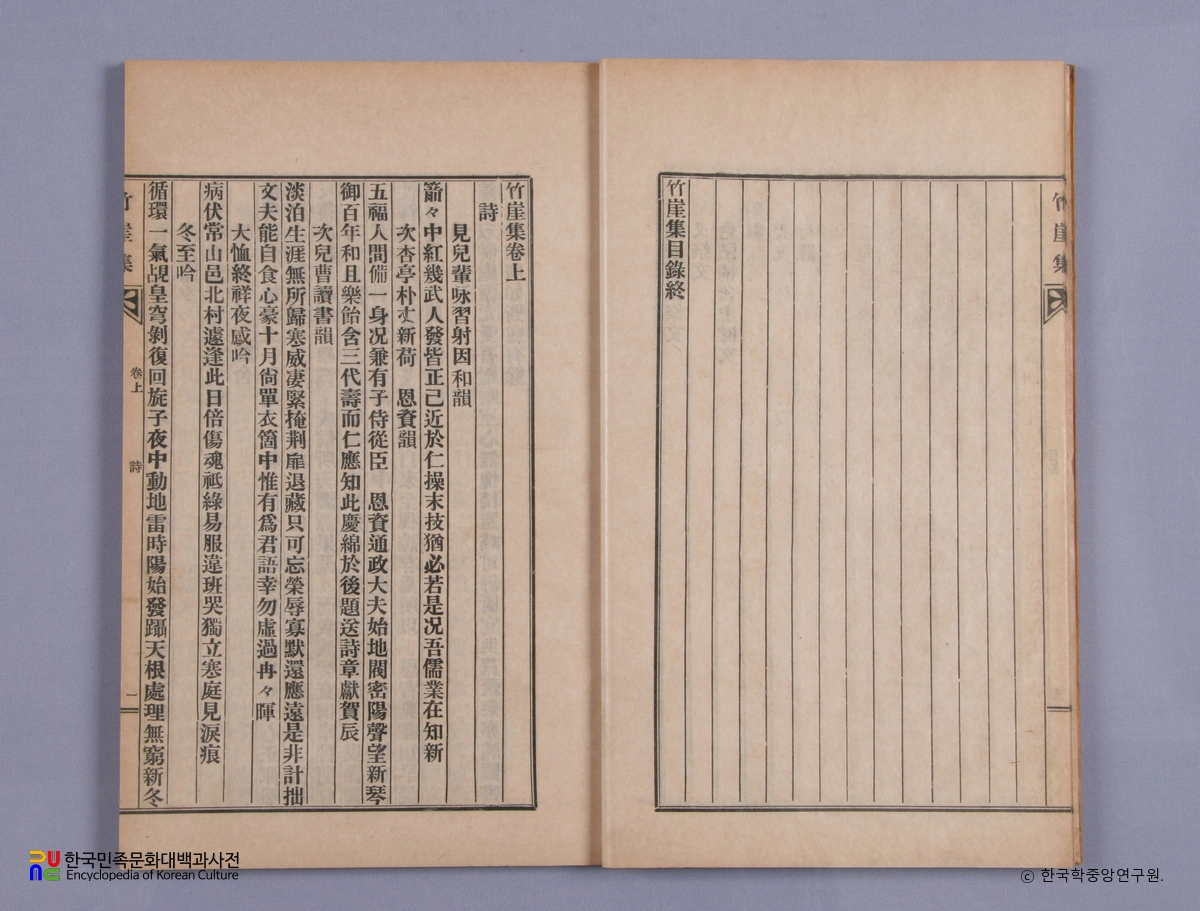 竹崖集
竹崖集目錄終
竹崖集卷上
詩
見兒輩咏習射因和韻
箭々中紅幾武人發皆正己近於仁操末技猶必若是况吾儒業在知新
次杏亭朴丈新荷 恩資韻
五福人間備一身况兼有子侍從臣 恩資通政大夫始地閥密陽聲望新琴
御百年和且樂飴含三代壽而仁應知此慶綿於後題送詩章獻賀辰
次兒曹讀書韻
淡泊生涯無所歸寒威凄緊掩荆扉退藏只可忘榮辱寡默還應遠是非計拙
文夫能自食心豪十月尙單衣箇中惟有爲君語幸勿虛過冉々暉
大恤終祥夜感吟
病伏常山邑北村遽逢此日倍傷魂祗綠易服違班哭獨立寒庭見淚痕
冬至吟
循環一氣覘皇穹剝復回旋子夜中動地雷時陽始發躡天根處理無窮新冬
竹崖集 卷上 詩 一
한국민족문화대백과사전
Encyclopedia of Korean Culture
ⓒ 한국학중앙연구원.